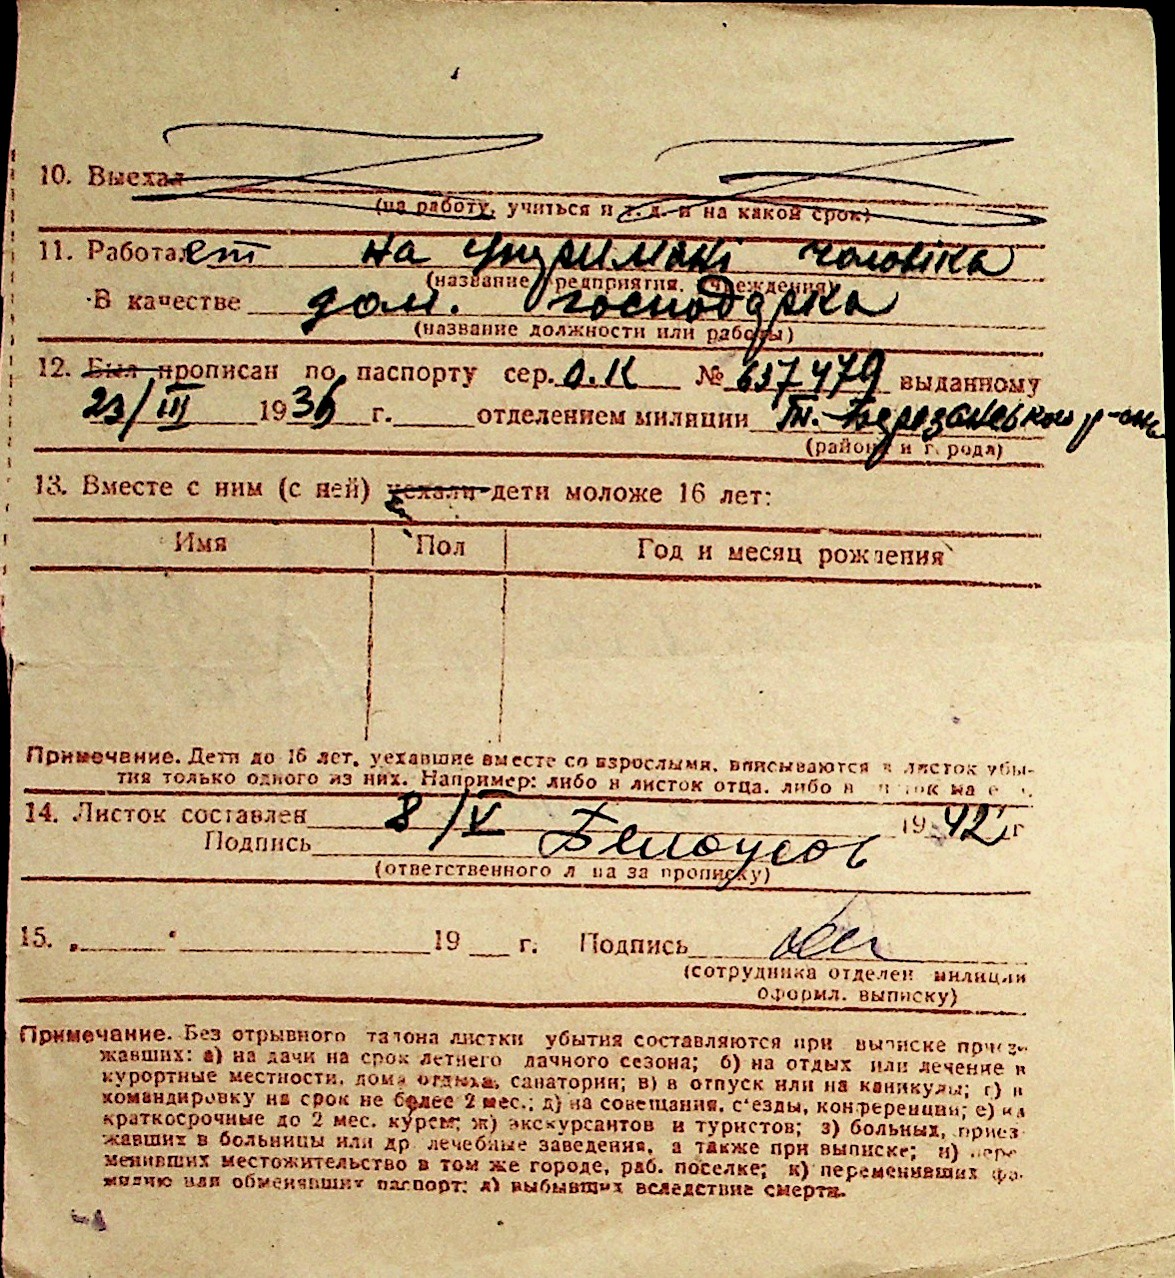 10. Выехал
(на работу, учиться и т. д. и на какой срок)
11. Работает на утриманні чоловіка
(название предприятия, учреждения)
В качестве дом. господарка
(название должности или работы)
12. Был прописан по паспорту сер. О.К № 657479 выданному
23/III 1936 г. отделением милиции р-он
(района и города)
13. Вместе с ним (с ней) уехали дети моложе 16 лет:
Имя Пол Год и месяц рождения
Примечание. Дети до 16 лет, уехавшие вместе со взрослыми, вписываются в листок убы-
тия только одного из них. Например: либо в листок отца, либо в
14. Листок составлен 8/V 1942 г
Подпись Белоусов
(ответственного лица за прописку)
15. „ “ 19 г. Подпись
(сотрудника отделен милиции
оформл. выписку)
Примечание. Без отрывного талона листки убытия составляются при выписке приез-
жавших: а) на дачи на срок летнего дачного сезона; б) на отдых или лечение в
курортные местности, дома отдыха, санатории; в) в отпуск или на каникулы; г) в
командировку на срок не более 2 мес.; д) на совещания, с'езды, конференции; е) на
краткосрочные до 2 мес. курсы; ж) экскурсантов и туристов; з) больных, приез
жавших в больницы или др лечебные заведения, а также при выписке; и) пере
менивших местожительство в том же городе, раб. поселке; к) переменивших фа-
милию или обменявших паспорт; л) выбывших вследствие смерти.